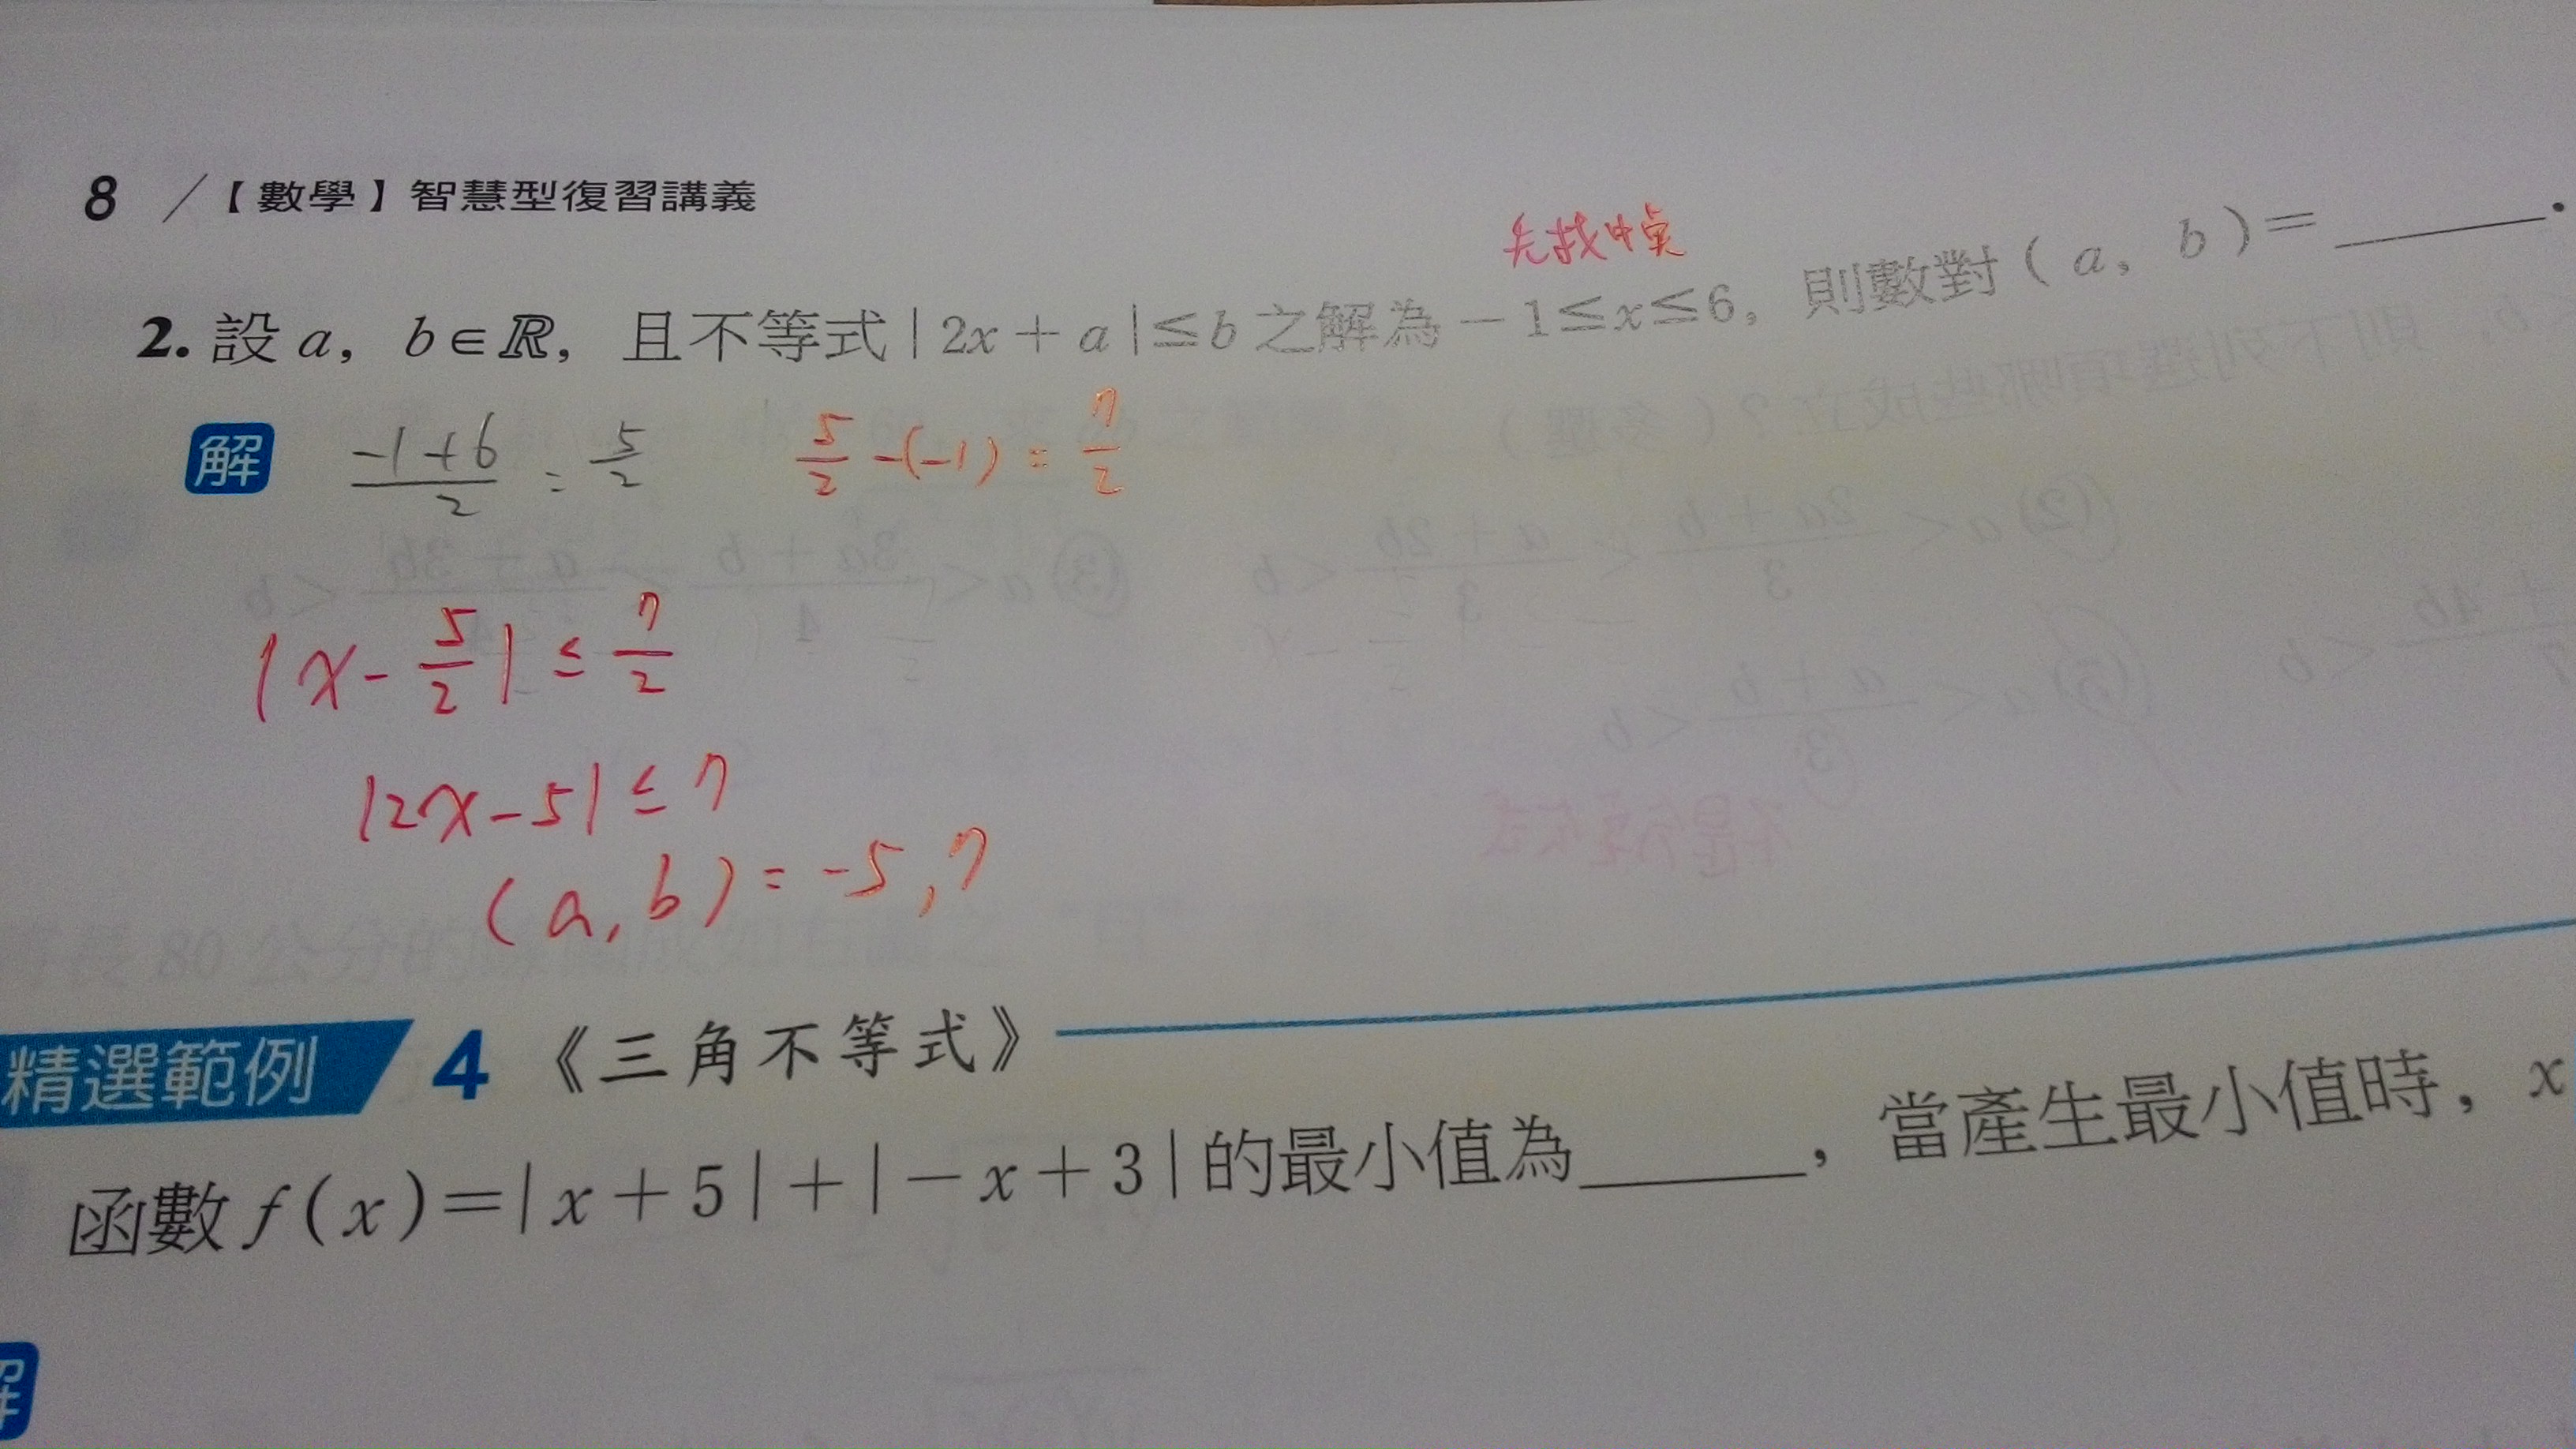 8 /【數學】智慧型復習講義
先找中点
2. 設 a, b∈ℝ, 且不等式 | 2x + a |≤b 之解為 −1≤x≤6, 則數對 ( a, b )=______.
解 (-1+6)/2 = 5/2   5/2 -(-1) = 7/2
|x - 5/2| ≤ 7/2
|2x-5| ≤ 7
(a, b) = -5, 7
精選範例 4 《三角不等式》
函數 f ( x )=| x + 5 |+|− x + 3 | 的最小值為______, 當產生最小值時, x
解